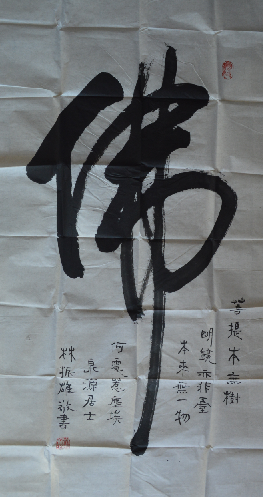 佛
菩提本無樹
明鏡亦非臺
本來無一物
何處惹塵埃
泉源居士
林振雄敬書